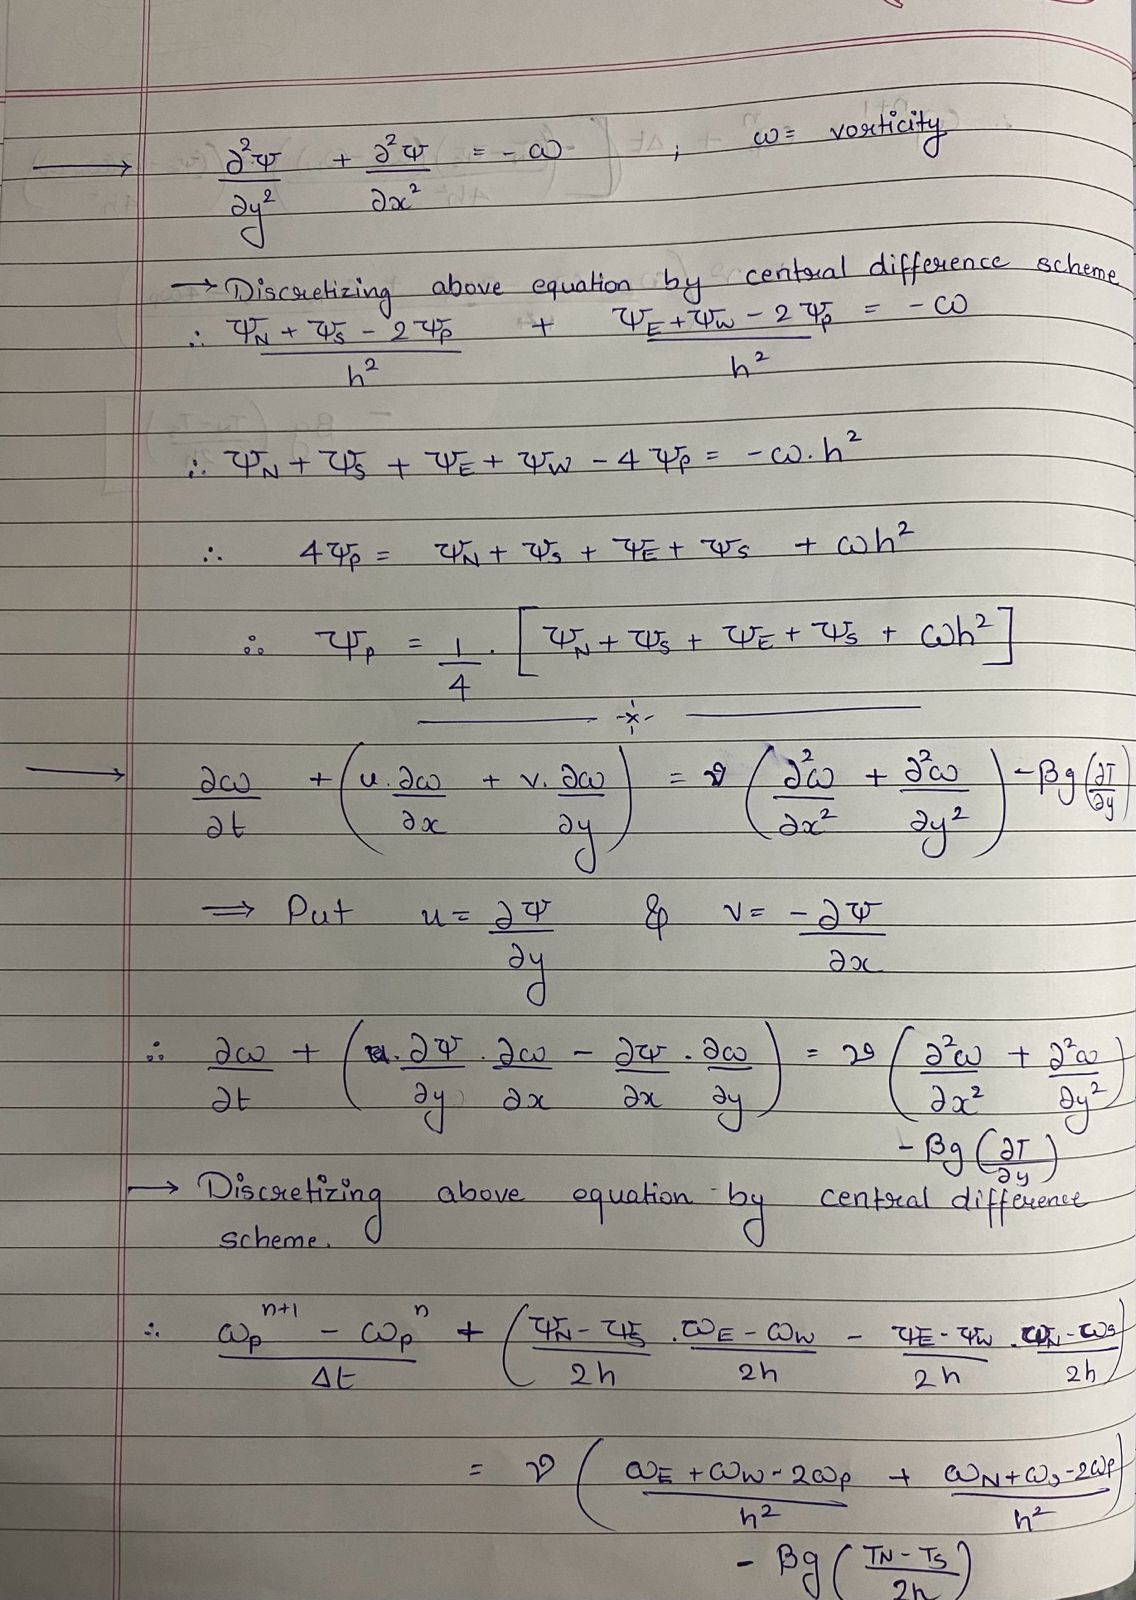 → ∂²Ψ/∂y² + ∂²Ψ/∂x² = -ω ; ω = vorticity
→ Discretizing above equation by central difference scheme
∴ (Ψ_N + Ψ_S - 2Ψ_P)/h² + (Ψ_E + Ψ_W - 2Ψ_P)/h² = -ω
∴ Ψ_N + Ψ_S + Ψ_E + Ψ_W - 4Ψ_P = -ω.h²
∴ 4Ψ_P = Ψ_N + Ψ_S + Ψ_E + Ψ_S + ωh²
∴ Ψ_P = 1/4 . [Ψ_N + Ψ_S + Ψ_E + Ψ_S + ωh²]
-x-
→ ∂ω/∂t + (u.∂ω/∂x + v.∂ω/∂y) = ν (∂²ω/∂x² + ∂²ω/∂y²) - βg (∂T/∂y)
⇒ Put u = ∂Ψ/∂y & v = -∂Ψ/∂x
∴ ∂ω/∂t + (∂Ψ/∂y . ∂ω/∂x - ∂Ψ/∂x . ∂ω/∂y) = ν (∂²ω/∂x² + ∂²ω/∂y²)
- βg (∂T/∂y)
→ Discretizing above equation by central difference
scheme.
∴ (ω_P^{n+1} - ω_P^n)/Δt + ((Ψ_N - Ψ_S)/2h . (ω_E - ω_W)/2h - (Ψ_E - Ψ_W)/2h . (ω_N - ω_S)/2h)
= ν ((ω_E + ω_W - 2ω_P)/h² + (ω_N + ω_S - 2ω_P)/h²)
- βg ((T_N - T_S)/2h)